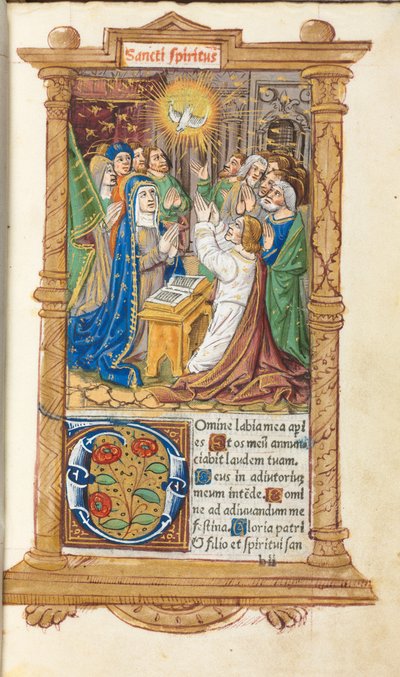 Sancti spiritus
Omine labia mea api
es Et os meū annun
ciabit laudem tuam.
Deus in adiutoriuʒ
meum intēde. Domi
ne ad adiuvandum me
festina. Gloria patri
& filio et spiritui san
b ii